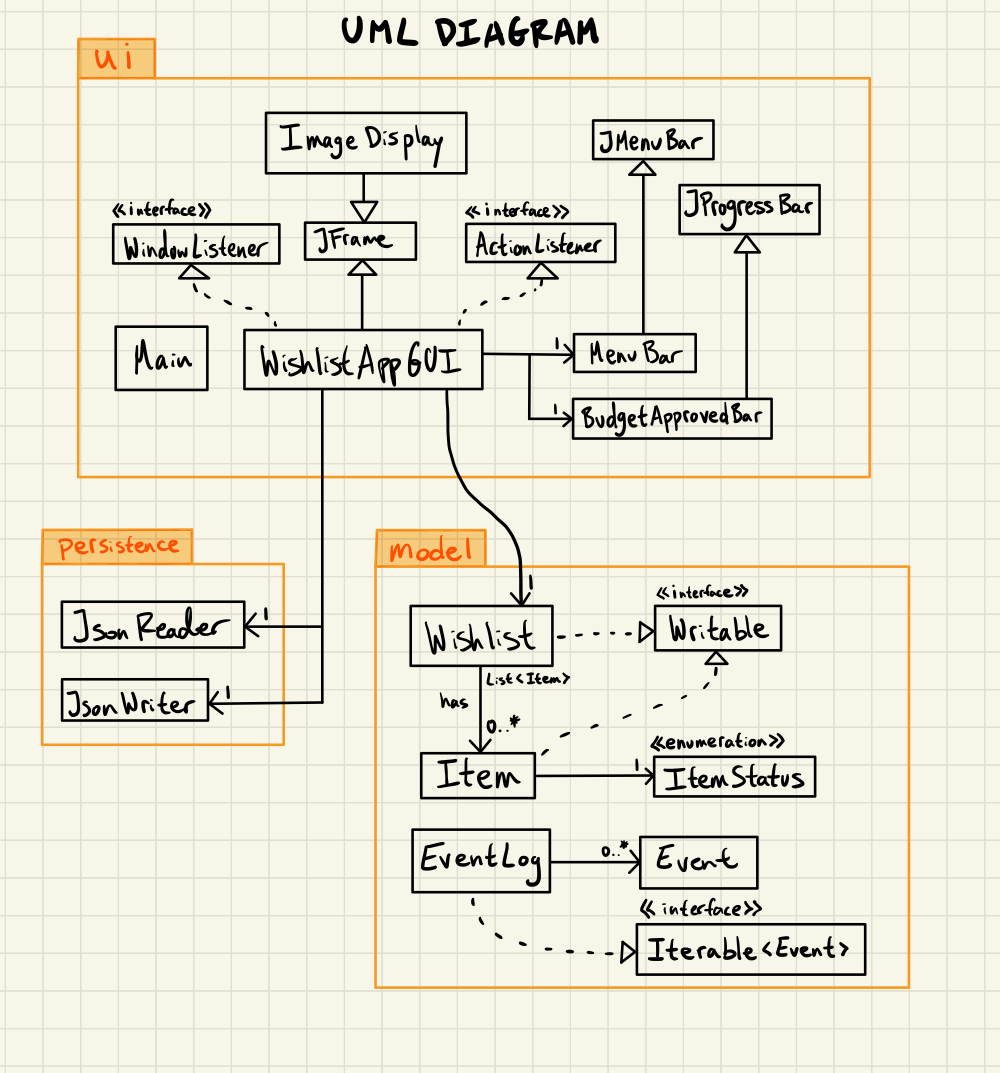 UML DIAGRAM
ui
Image Display
JMenuBar
JProgressBar
<<interface>>
WindowListener
JFrame
<<interface>>
ActionListener
Main
WishlistAppGUI
1
MenuBar
1
BudgetApprovedBar
persistence
model
1
JsonReader
1
JsonWriter
1
Wishlist
<<interface>>
Writable
List<Item>
has
0..*
Item
<<enumeration>>
1
ItemStatus
EventLog
0..*
Event
<<interface>>
Iterable<Event>